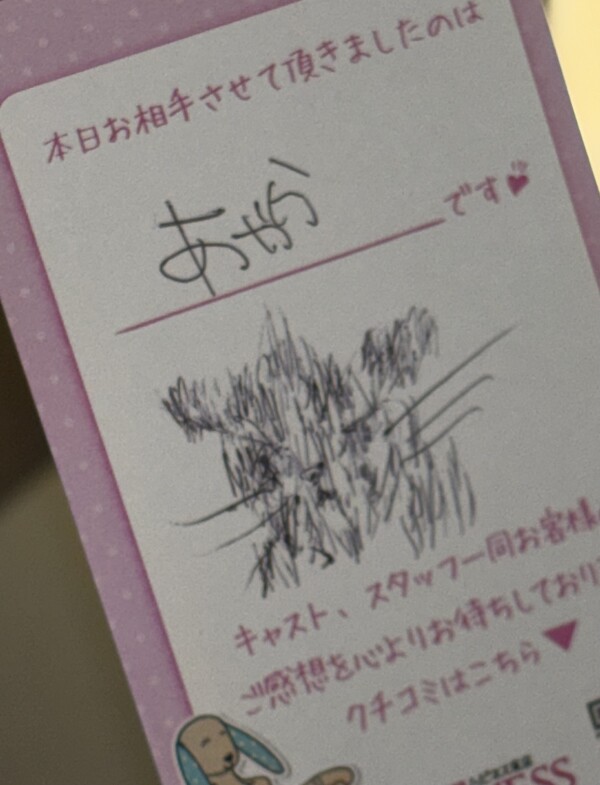 本日お相手させて頂きましたのは
あやか
です
キャスト、スタッフ一同お客様
ご感想を心よりお待ちしており
クチコミはこちら▼